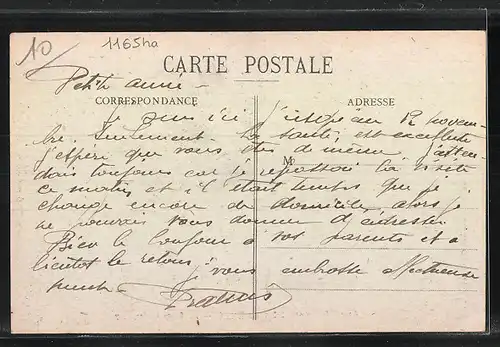 10
1165ha
CARTE POSTALE
Petite amie –
CORRESPONDANCE
ADRESSE
Je suis ici jusqu'au 12 novem-
bre seulement. La santé est excellente
j'espère que vous êtes de même j'atten-
M
dais toujours car je repassais la visite
ce matin et s'il était temps que je
change encore de domicile alors je
ne pouvais vous donner d'adresse
Bien le bonjour à vos parents et à
bientôt le retour, je vous embrasse affectueuse
ment